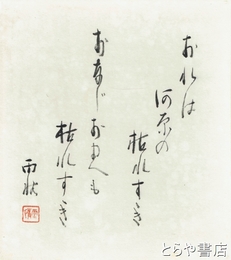 おれは
河原の
枯れすすき
おなじおまへも
枯れすすき
雨情
とらや書店